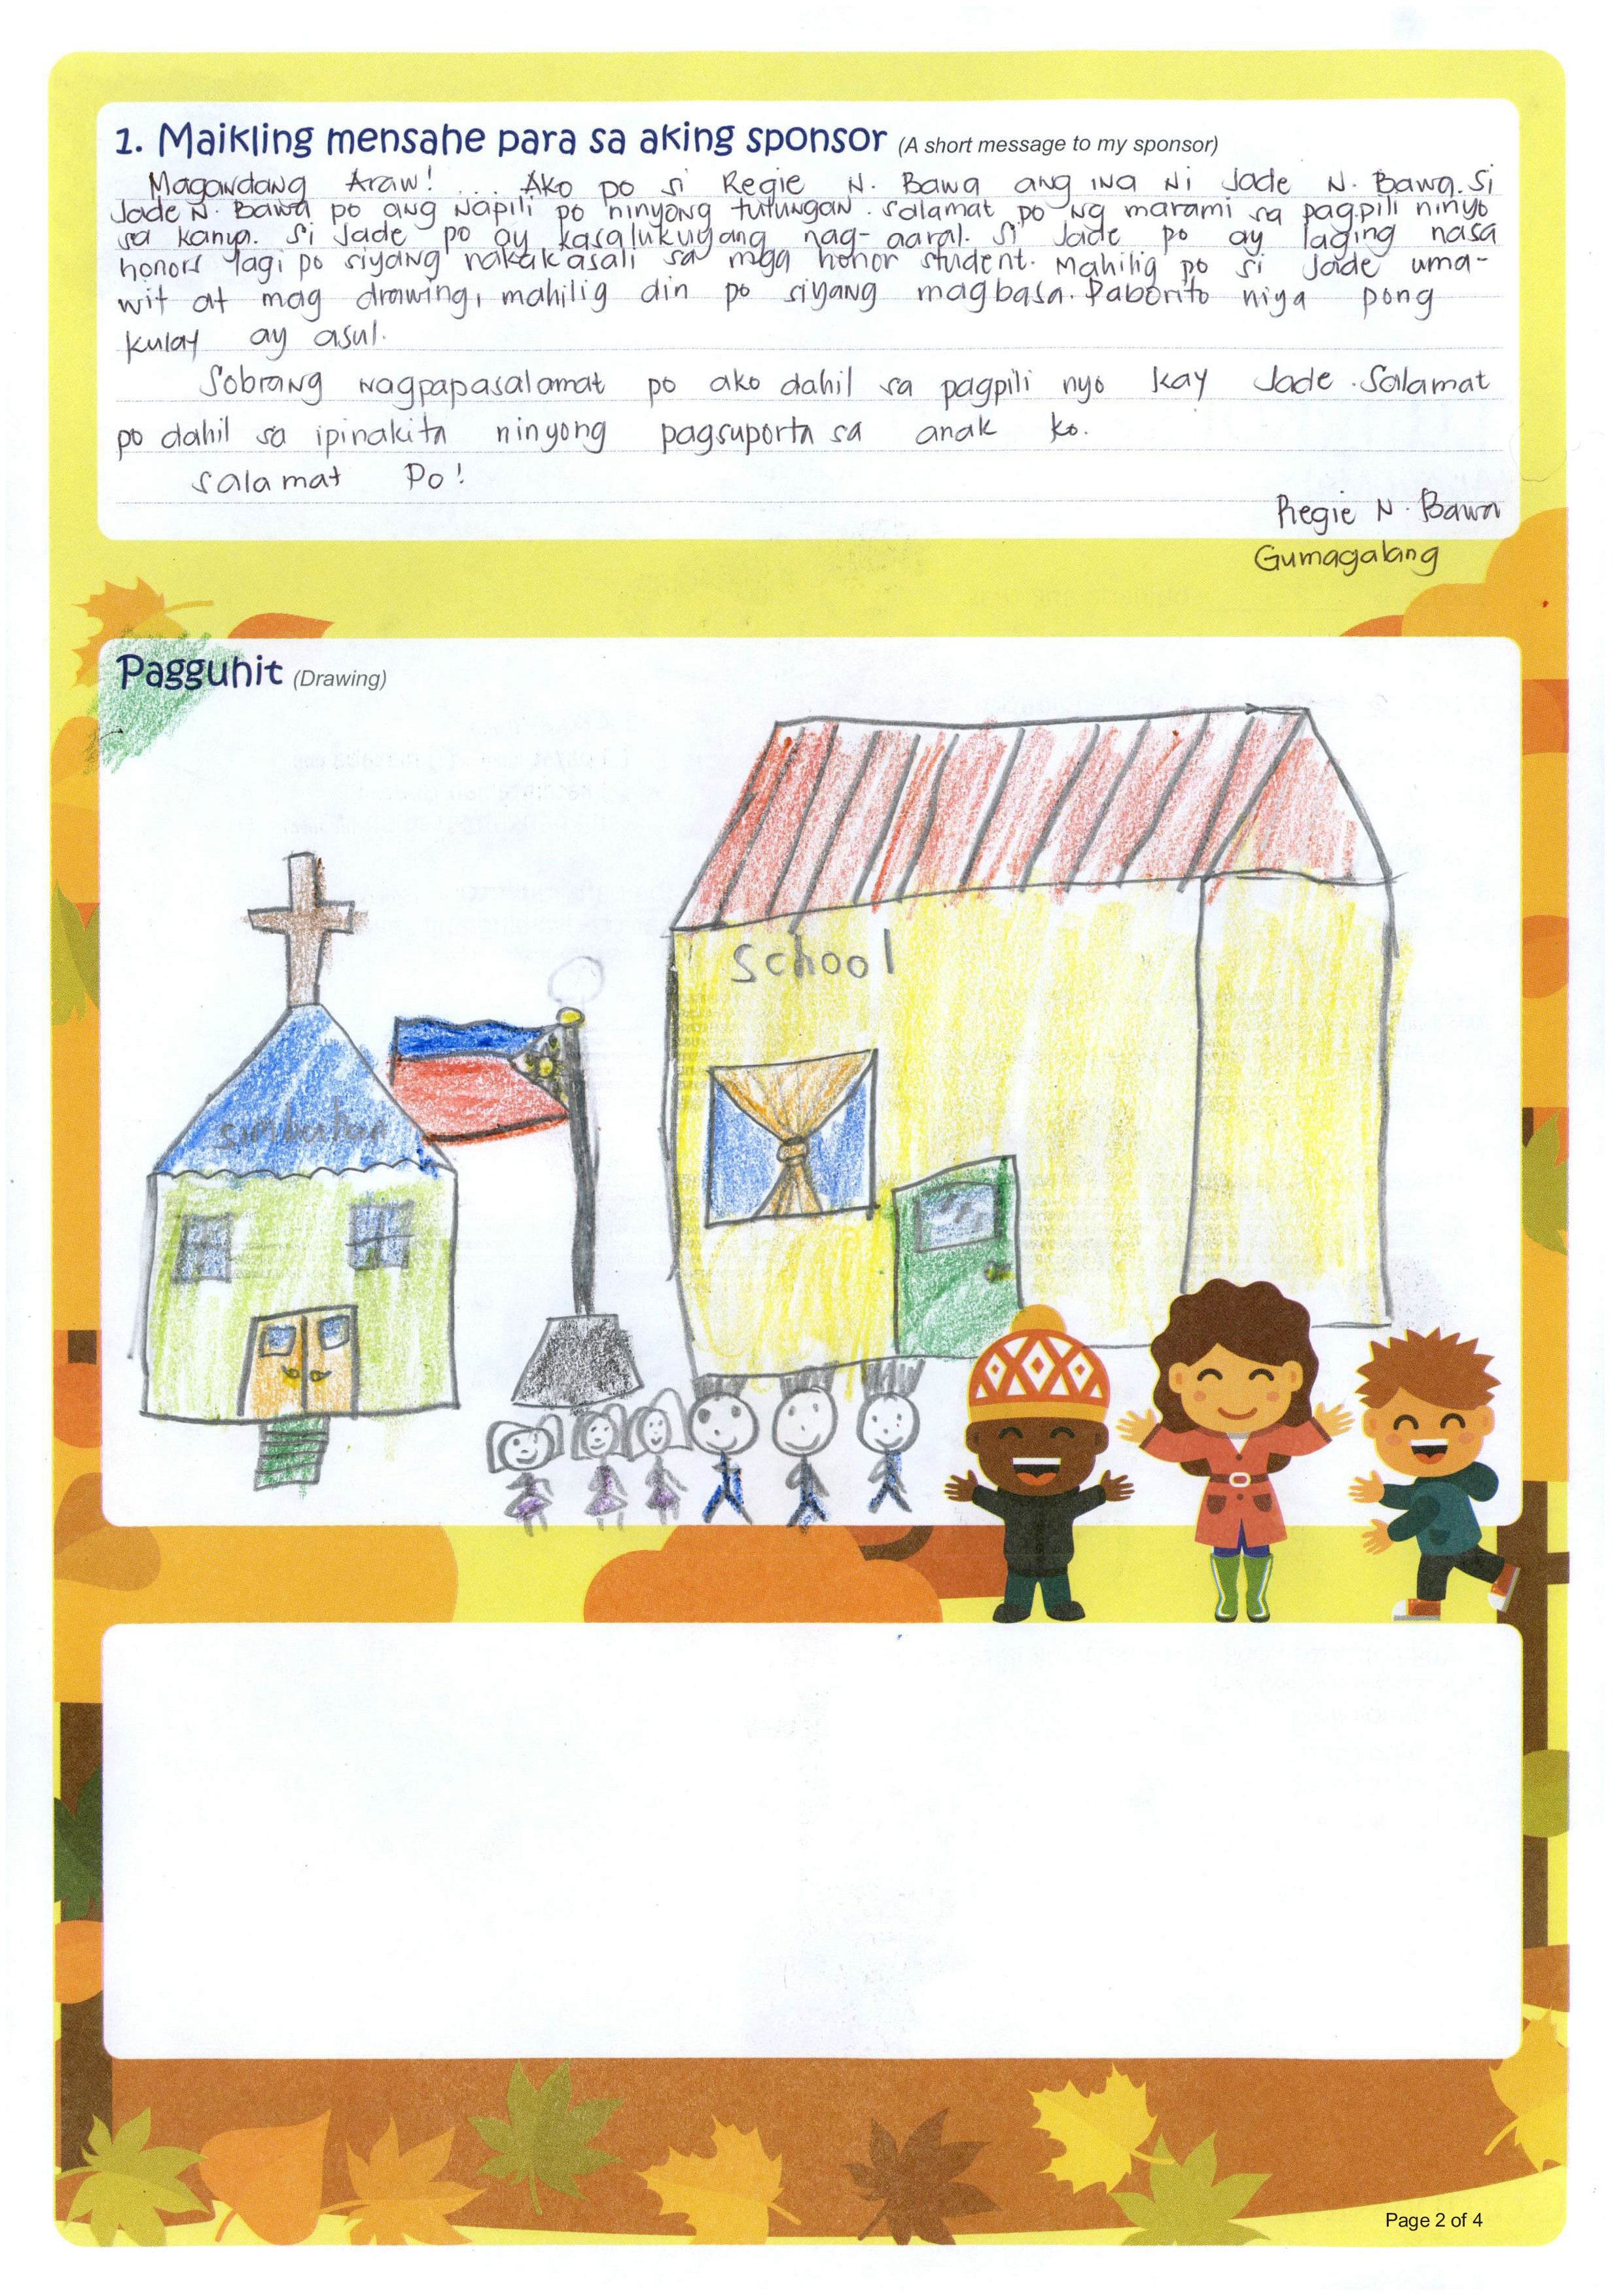 1. Maikling mensahe para sa aking sponsor (A short message to my sponsor)
Magandang Araw! ... Ako po si Regie N. Bawa ang ina ni Jade N. Bawa. Si
Jade N. Bawa po ang napili po ninyong tulungan. Salamat po ng marami sa pagpili ninyo
sa kanya. Si Jade po ay kasalukuyang nag-aaral. Si Jade po ay laging nasa
honors lagi po siyang nakakasali sa mga honor student. Mahilig po si Jade uma-
wit at mag drawing, mahilig din po siyang magbasa. Paborito niya pong
kulay ay asul.
Sobrang nagpapasalamat po ako dahil sa pagpili nyo kay Jade. Salamat
po dahil sa ipinakita ninyong pagsuporta sa anak ko.
Salamat Po!
Regie N. Bawa
Gumagalang
Pagguhit (Drawing)
School
Simbahan
Page 2 of 4